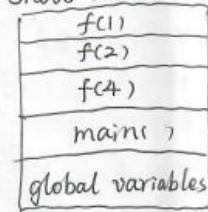 f(1)
f(2)
f(4)
main( )
global variables